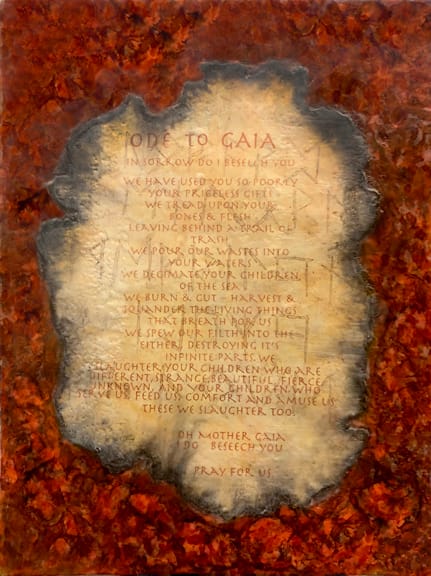 ODE TO GAIA
IN SORROW DO I BESEECH YOU
WE HAVE USED YOU SO POORLY
YOUR PRICELESS GIFTS
WE TREAD UPON YOUR
BONES & FLESH
LEAVING BEHIND A TRAIL OF
TRASH
WE POUR OUR WASTES INTO
YOUR WATERS
WE DECIMATE YOUR CHILDREN
OF THE SEA
WE BURN & CUT - HARVEST &
SQUANDER THE LIVING THINGS
THAT BREATH FOR US
WE SPEW OUR FILTH INTO THE
EITHER, DESTROYING IT'S
INFINITE PARTS. WE
SLAUGHTER YOUR CHILDREN WHO ARE
DIFFERENT, STRANGE, BEAUTIFUL, FIERCE
UNKNOWN, AND YOUR CHILDREN WHO
SERVE US, FEED US, COMFORT AND AMUSE US
THESE WE SLAUGHTER TOO.
OH MOTHER GAIA
I DO BESEECH YOU
PRAY FOR US